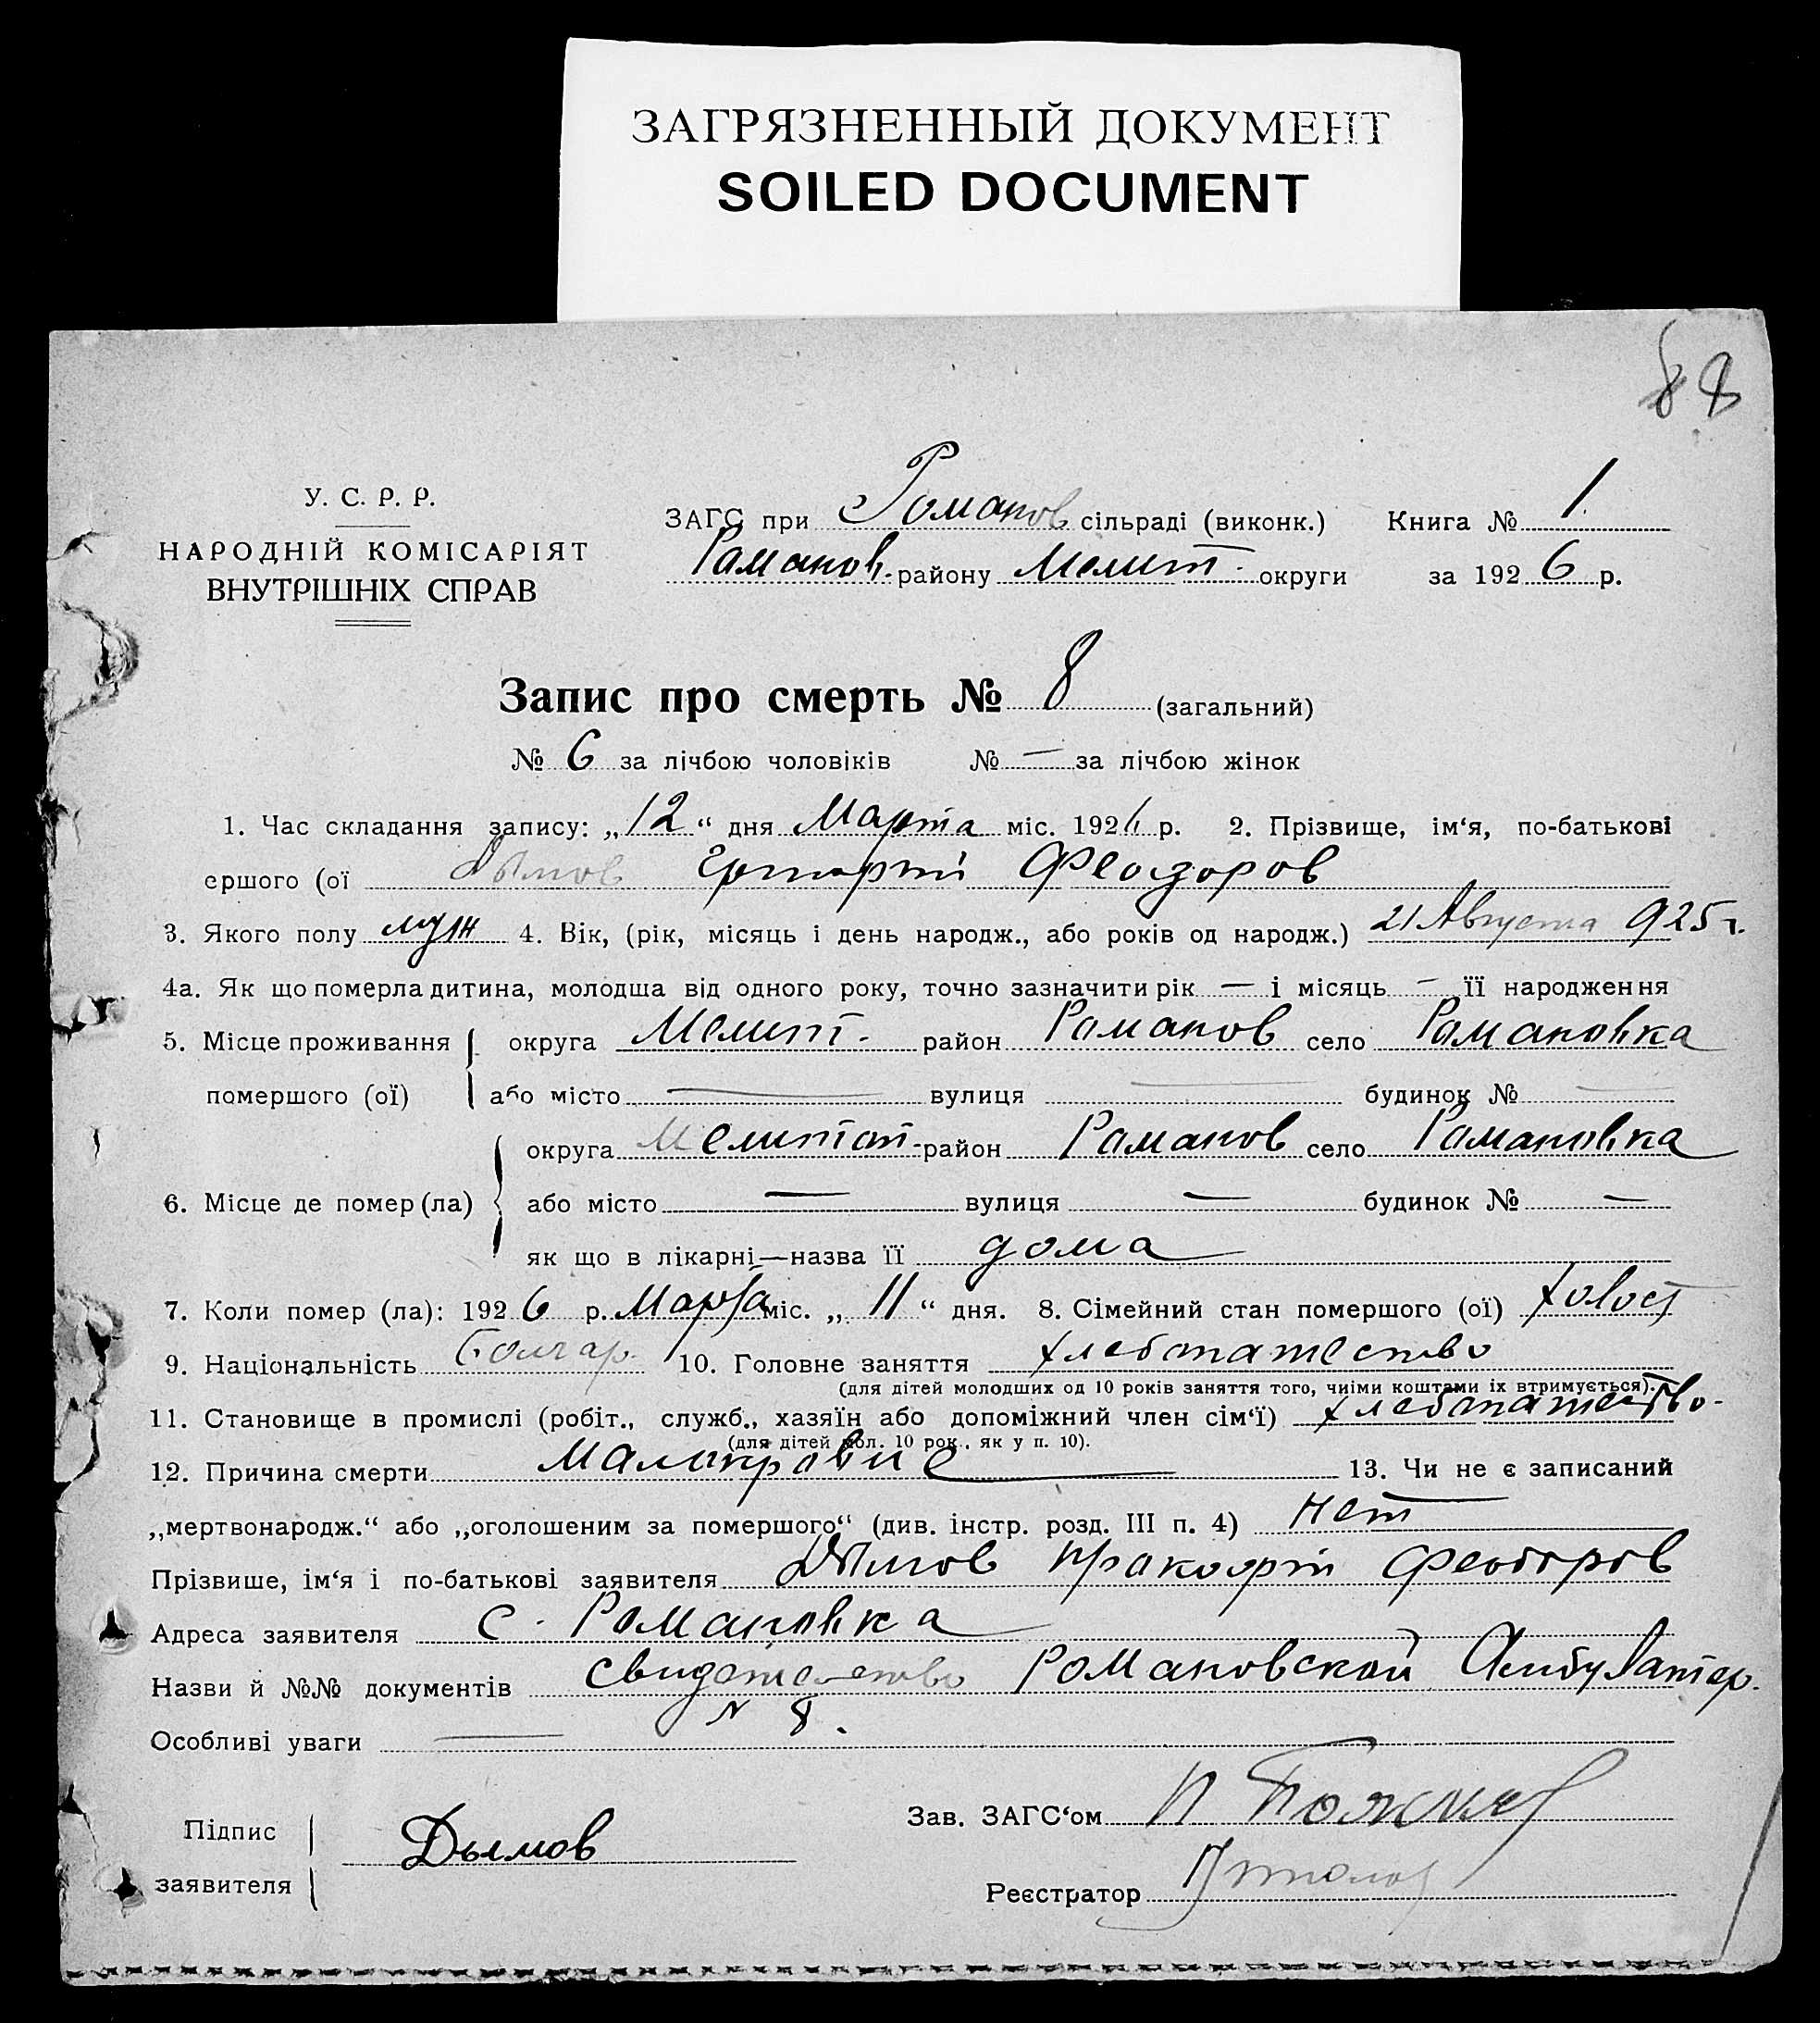 ЗАГРЯЗНЕННЫЙ ДОКУМЕНТ
SOILED DOCUMENT
88
У. С. Р. Р.
НАРОДНІЙ КОМІСАРІЯТ
ВНУТРІШНІХ СПРАВ
ЗАГС при Романов сільраді (виконк.) Книга № 1
Романов. району Мелит. округи за 1926 р.
Запис про смерть № 8 (загальний)
№ 6 за лічбою чоловіків № — за лічбою жінок
1. Час складання запису: „12“ дня Марта міс. 1926 р. 2. Прізвище, ім‘я, по-батькові
ершого (ої Дымов Феодоров
3. Якого полу муж 4. Вік, (рік, місяць і день народж., або років од народж.) 21 Августа 925 г.
4а. Як що померла дитина, молодша від одного року, точно зазначити рік — і місяць — її народження
5. Місце проживання округа Мелит. район Романов село Романовка
помершого (ої) або місто — вулиця — будинок № —
округа Мелитоп. район Романов село Романовка
6. Місце де помер (ла) або місто — вулиця — будинок № —
як що в лікарні—назва її дома
7. Коли помер (ла): 1926 р. Марта міс. „11“ дня. 8. Сімейний стан помершого (ої) холост
9. Національність Болгар. 10. Головне заняття хлебопашество
(для дітей молодших од 10 років заняття того, чиїми коштами їх втримується).
11. Становище в промислі (робіт., служб., хазяїн або допоміжний член сім‘ї) хлебопашество.
(для дітей мол. 10 рок., як у п. 10).
12. Причина смерти Малокровие 13. Чи не є записаний
„мертвонародж.“ або „оголошеним за помершого“ (див. інстр. розд. III п. 4) нет
Прізвише, ім‘я і по-батькові заявителя Дымов Прокофий Феодоров
Адреса заявителя с. Романовка
Назви й №№ документів свидетельство Романовской Амбулатор.
N 8.
Особливі уваги —
Підпис
заявителя
Дымов
Зав. ЗАГС‘ом П
Реєстратор